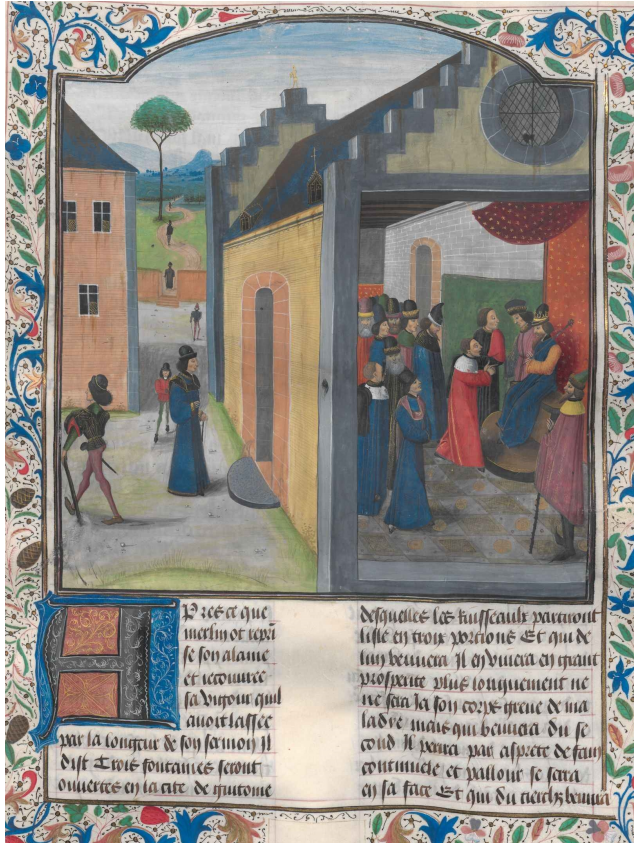 Apres ce que
merlin ot repri
se son alaine
et recouuree
sa vigour quil
auoit laissee
par la longeur de son sermon Il
dist Trois fontaines seront
ouuertes en la cite de guitome
desquelles les Ruisseaulx partiront
lisle en troix porcions Et qui de
lun beuuera Il en viuera en grant
prosperite plus longuement ne
ne sera Ja son corps greue de ma
ladie mais qui beuuera du se
cond Il perira par asprete de fain
continuele et pallour se sera
en sa face Et qui du tierch beuuera